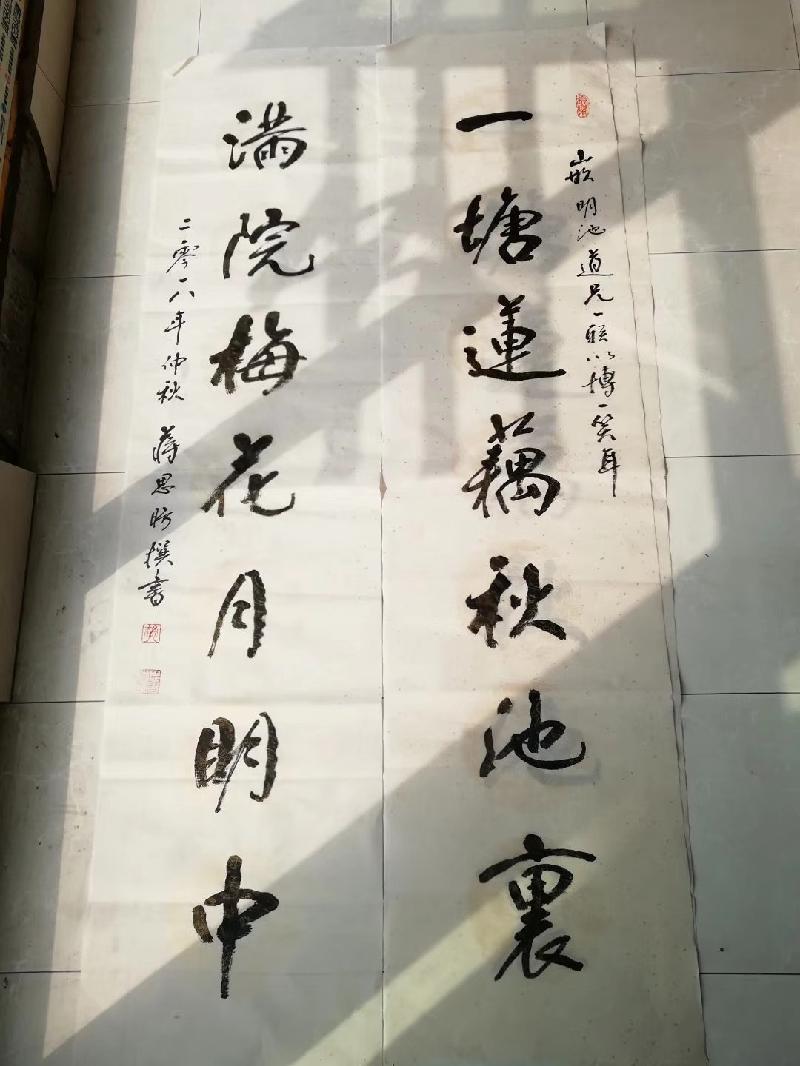 嵌明池道兄一联以博一笑耳
一塘蓮藕秋池裏
满院梅花月明中
二零一八年仲秋 蒋思昉撰書